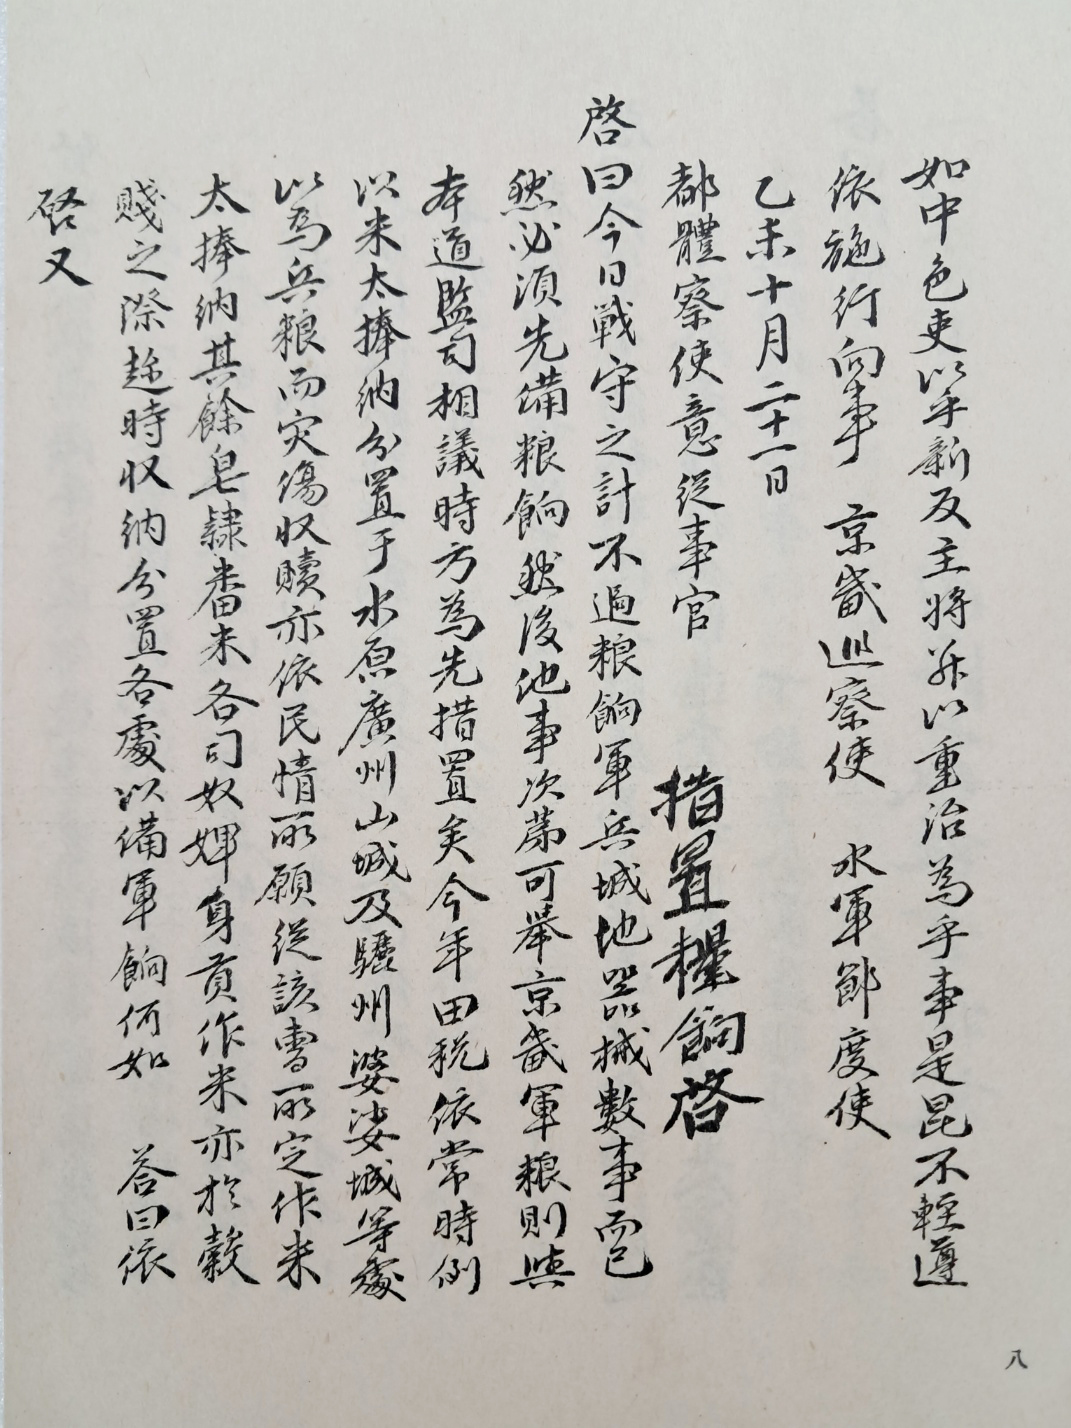 如中色吏以乎新反主將幷以重治為乎事是昆不輕遵
依施行向事 京畿巡察使 水軍節度使
乙未十月二十一日
都體察使意從事官 措置糧餉啓
啓曰今日戰守之計不過粮餉軍兵城池器械數事而已
然必須先備粮餉然後他事次苐可舉京畿軍粮則與
本道監司相議時方為先措置矣今年田稅依常時例
以米太捧納分置于水原廣州山城及驪州婆娑城等處
以為兵粮而灾傷収贖亦依民情所願從該曹所定作米
太捧納其餘皂隷番米各司奴婢身貢作米亦於穀
賤之際趂時収納分置各處以備軍餉何如 答曰依
啓又
八